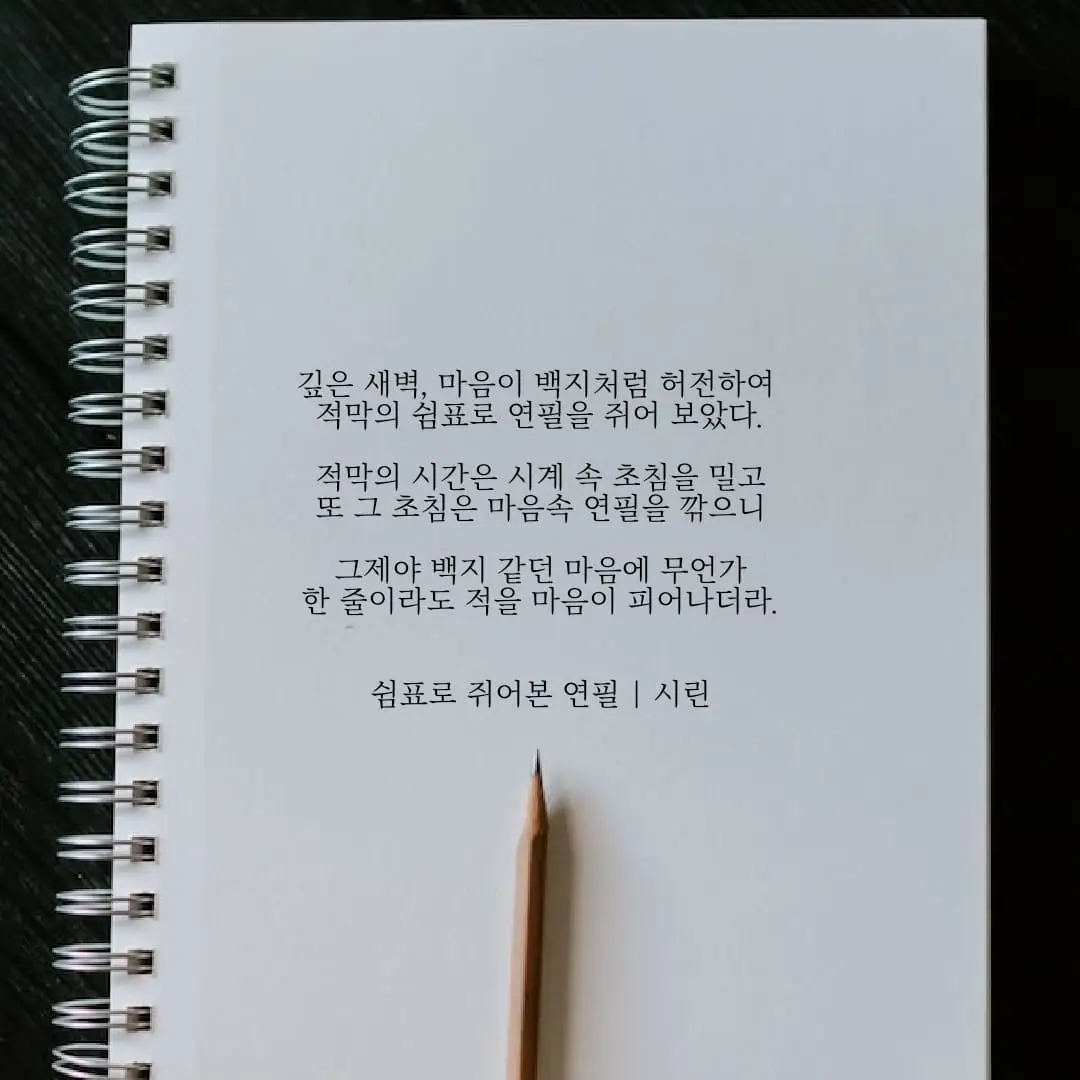 깊은 새벽, 마음이 백지처럼 허전하여
적막의 쉼표로 연필을 쥐어 보았다.
적막의 시간은 시계 속 초침을 밀고
또 그 초침은 마음속 연필을 깎으니
그제야 백지 같던 마음에 무언가
한 줄이라도 적을 마음이 피어나더라.
쉼표로 쥐어본 연필 | 시린